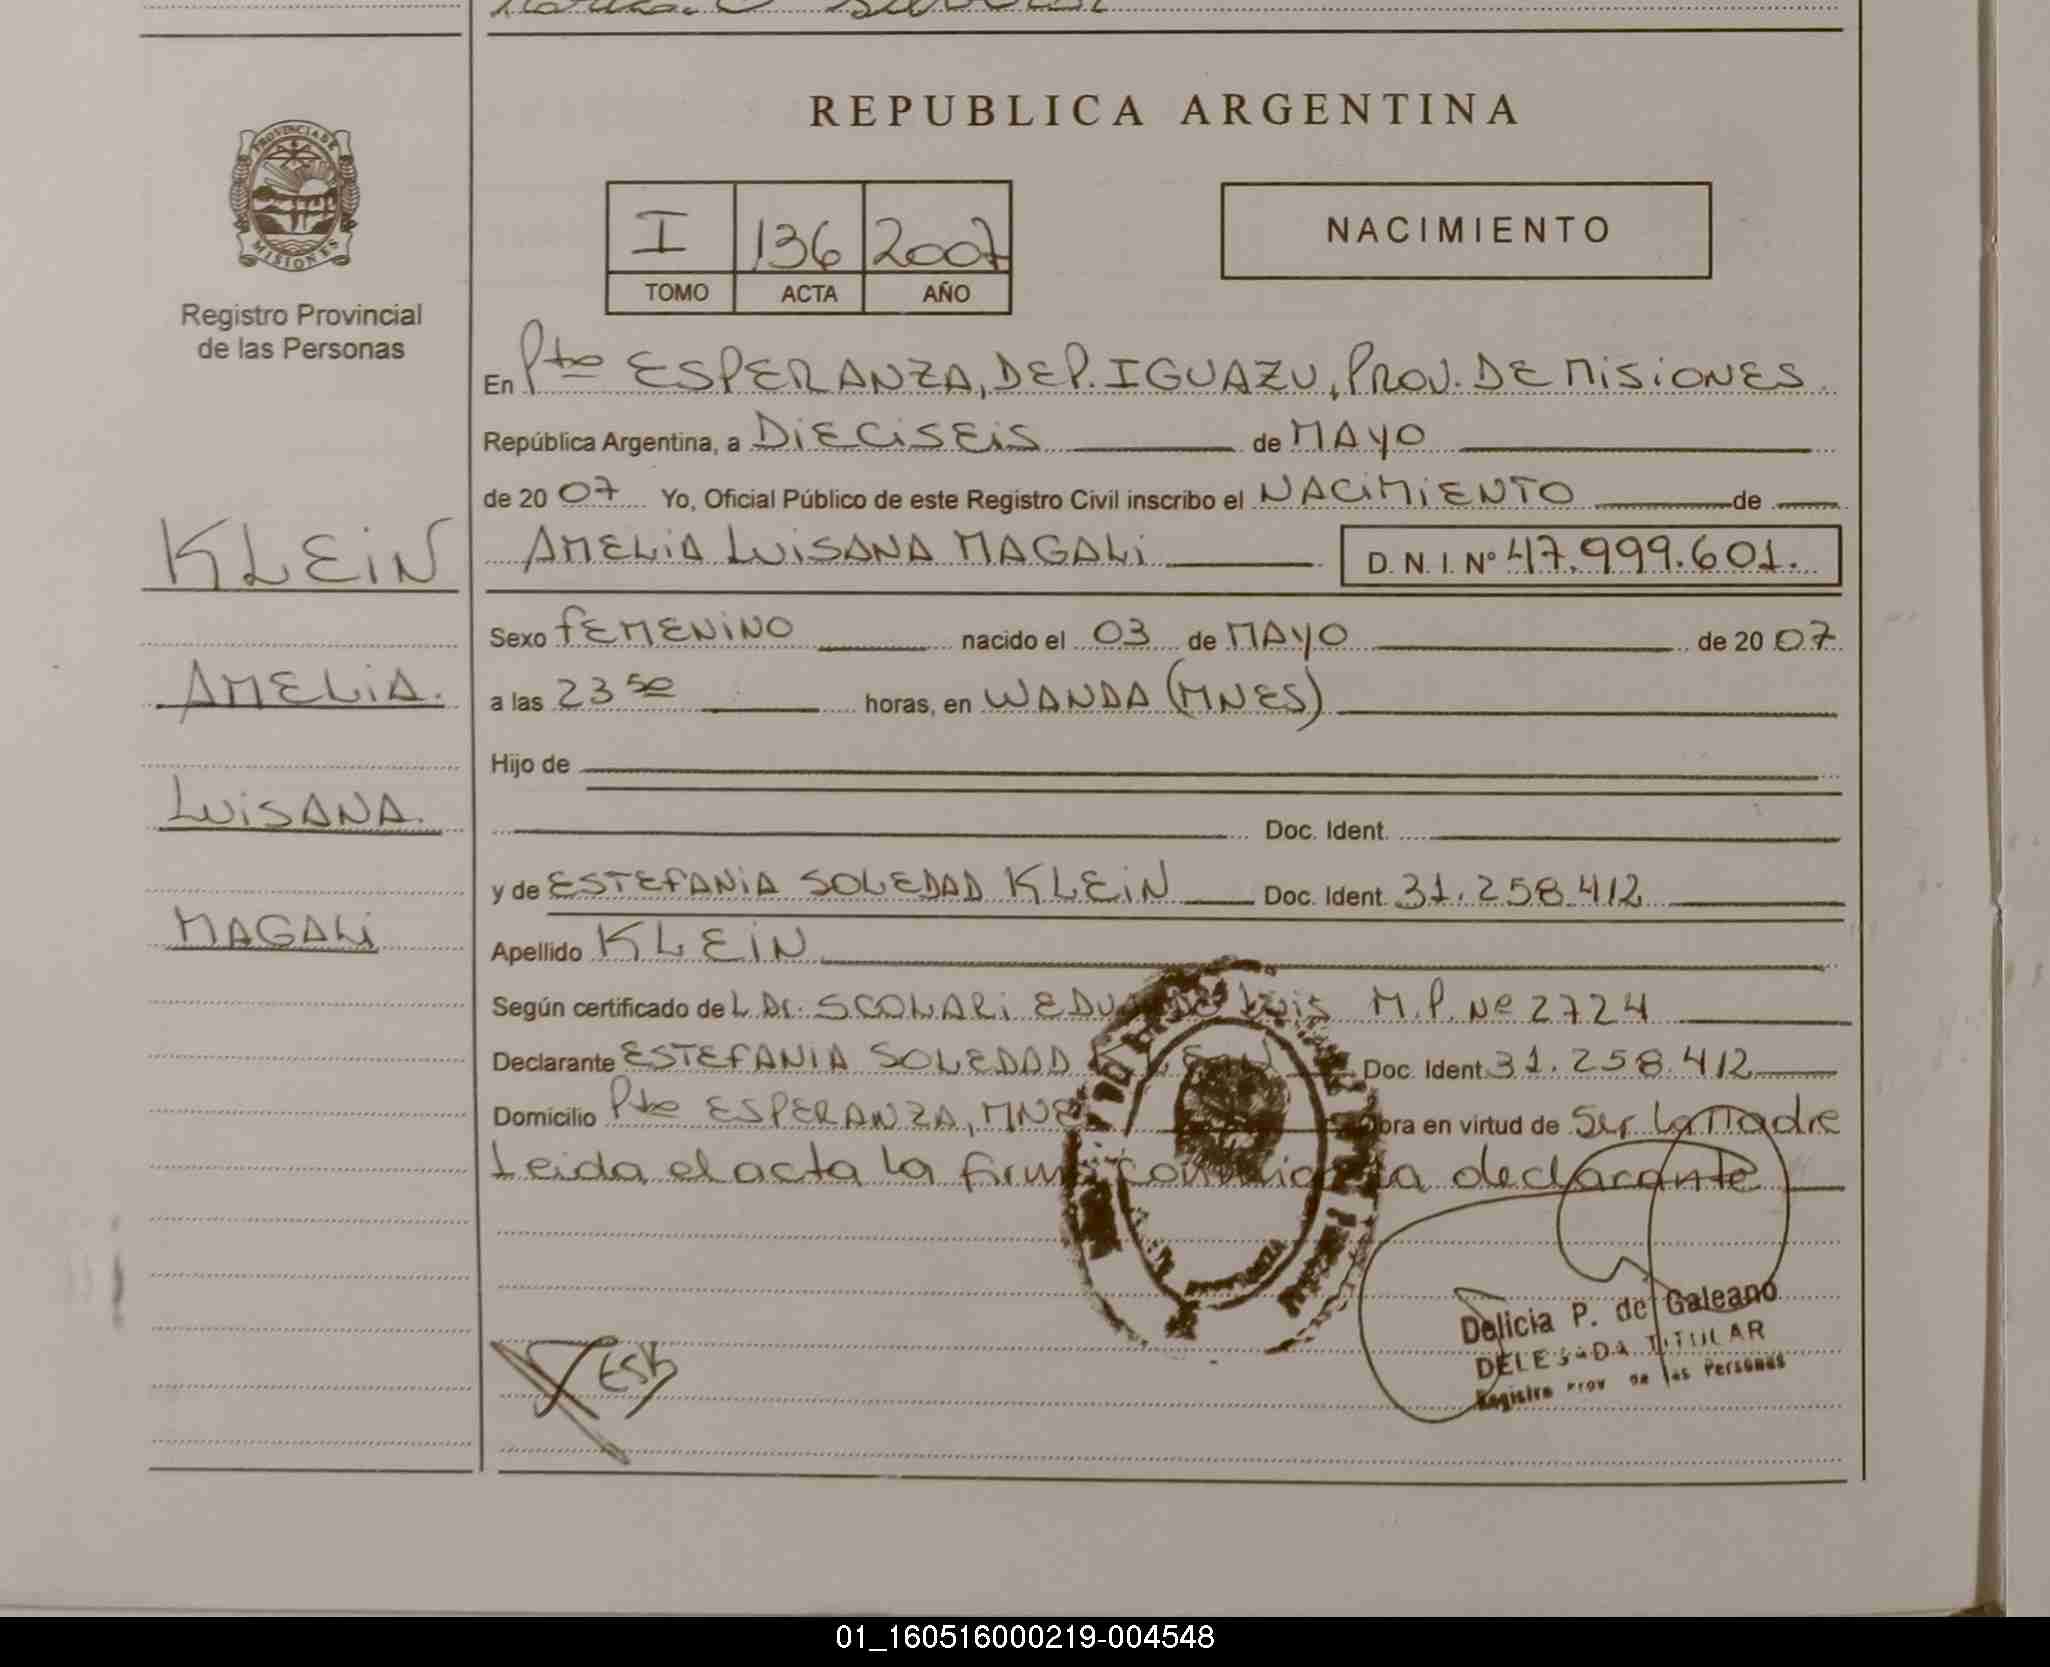 REPUBLICA ARGENTINA
PROVINCIA DE
MISIONES
Registro Provincial
de las Personas
I 136 2007
TOMO ACTA AÑO
NACIMIENTO
En Pto ESPERANZA, DEP. IGUAZU, PROV. DE MISIONES
República Argentina, a DIECISEIS de MAYO
de 20 07 Yo, Oficial Público de este Registro Civil inscribo el NACIMIENTO de
AMELIA LUISANA MAGALI D.N.I. Nº 47.999.601.
KLEIN
AMELIA.
LUISANA.
MAGALI
Sexo FEMENINO nacido el 03 de MAYO de 20 07
a las 23 50 horas, en WANDA (MNES)
Hijo de
Doc. Ident.
y de ESTEFANIA SOLEDAD KLEIN Doc. Ident. 31.258.412
Apellido KLEIN
Según certificado de L Dr. SCOLARI LUIS M.P. Nº 2724
Declarante ESTEFANIA SOLEDAD KLEIN Doc. Ident 31.258.412
Domicilio Pto ESPERANZA, MNES obra en virtud de Ser La Madre
Leida el acta la firma conmigo la declarante
ESK
Delicia P. de Galeano
DELEGADA TITULAR
Registro Prov de las Personas
01_160516000219-004548